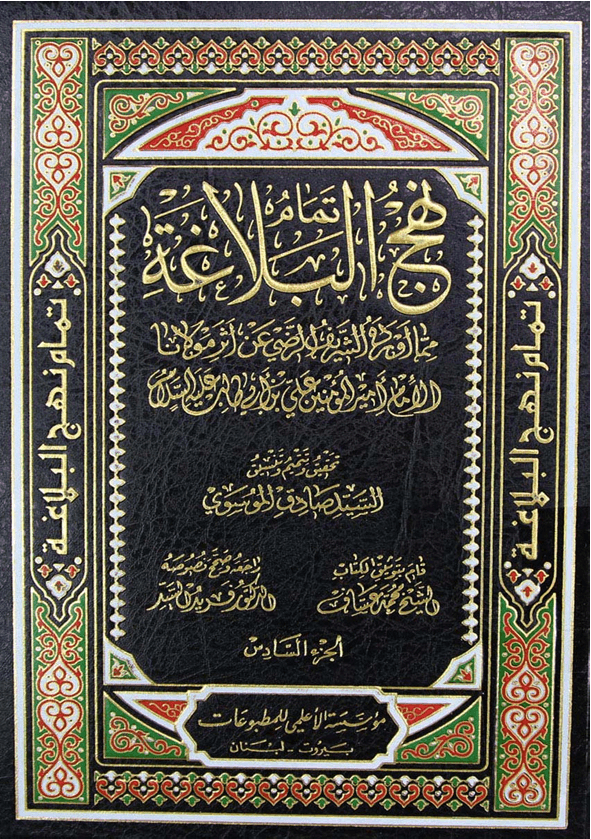 تمام نهج البلاغة
مما أورده الشريف الرضي عن أثر مولانا
الإمام أمير المؤمنين علي بن أبي طالب عليه السلام
تحقيق وتتميم وتنسيق
السيد صادق الموسوي
قام بتوثيق الكتاب
الشيخ محمد عساف
راجعه وصحح نصوصه
الدكتور فريد السيد
الجزء السادس
مؤسسة الأعلمي للمطبوعات
بيروت - لبنان
تمام نهج البلاغة
تمام نهج البلاغة